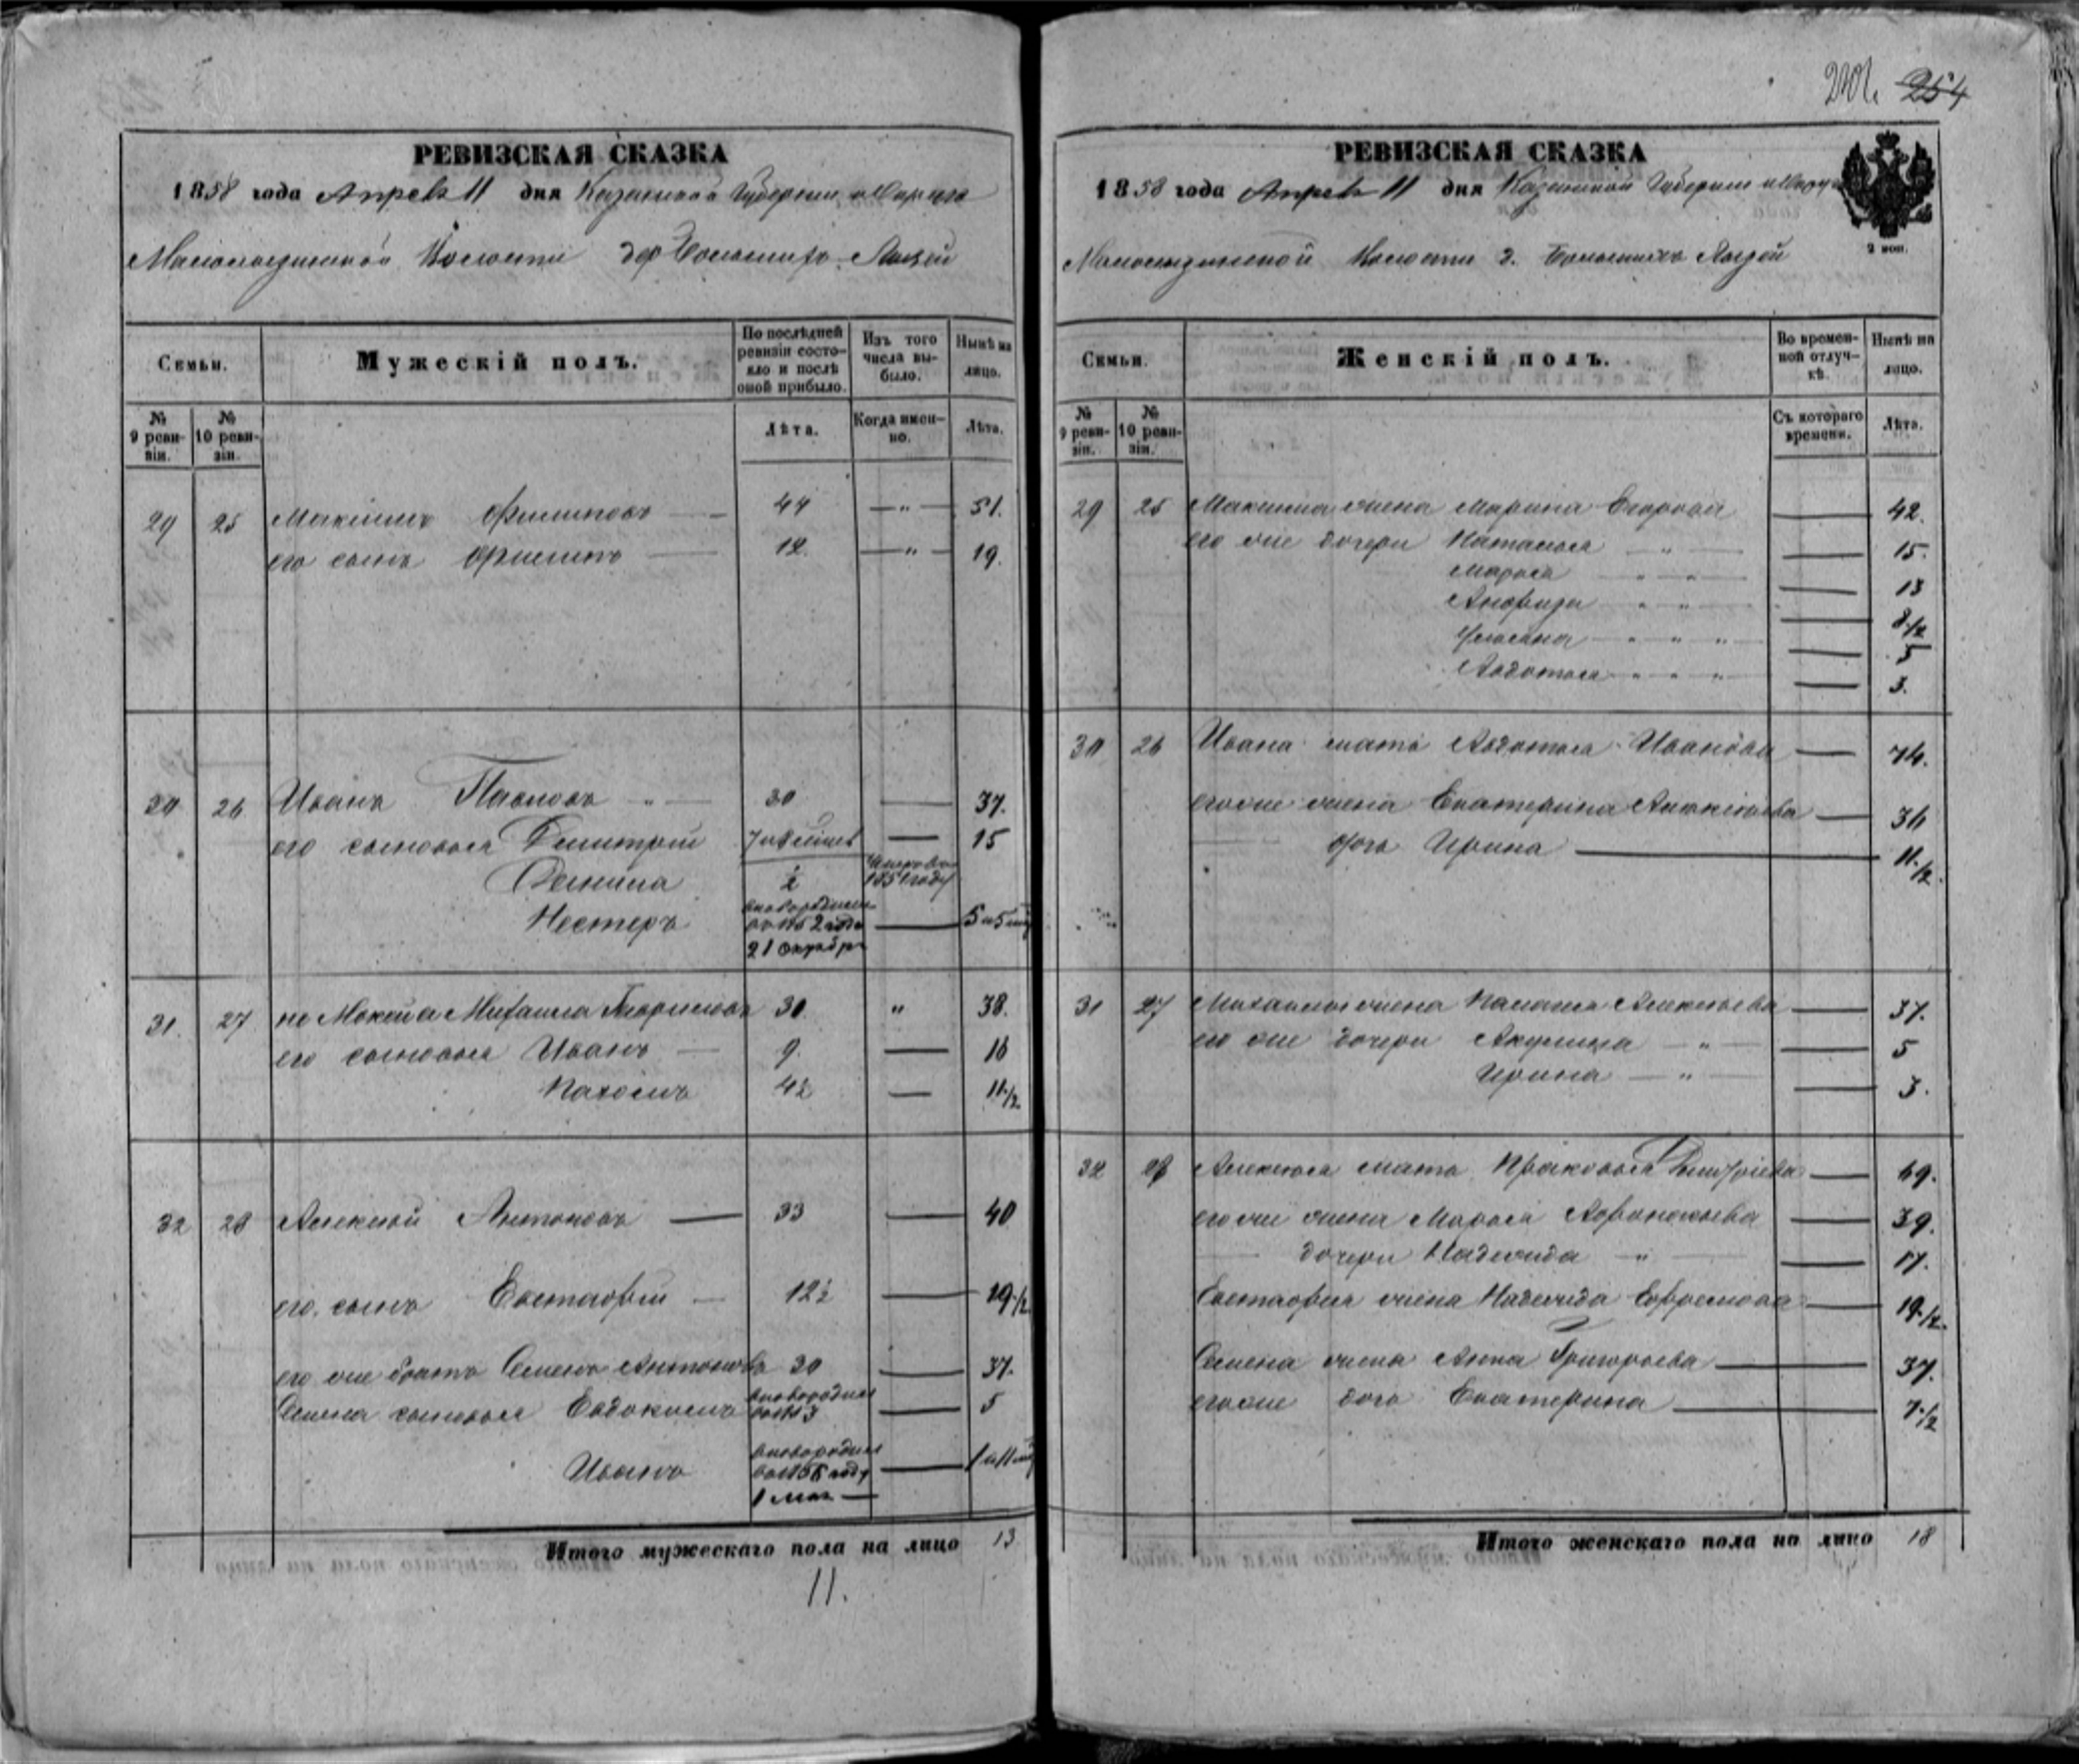 254
РЕВИЗСКАЯ СКАЗКА
1858 года Апреля 11 дня Казанской Губерніи
Волости дер Большихъ
Семьи.
Мужескій полъ.
По послѣдней ревизіи состояло и послѣ оной прибыло.
Изъ того числа выбыло.
Нынѣ на лицо.
№ 9 ревизіи.
№ 10 ревизіи.
Лѣта.
Когда именно.
Лѣта.
29 25 Максимъ Филиповъ 44 — " — 51.
его сынъ Филипъ 12 — " — 19.
30 26 Иванъ Павловъ 30 — 37.
его сыновья Дмитрій — 15
½ 1851 году
Нестеръ новорожден 1852 года 21 октября — 5
31. 27 Михаила 30 " 38.
его сыновья Иванъ 9. — 16
Пахомъ 4½ — 11½
32 28 Алексѣй Антоновъ — 33 — 40
его сынъ Евстафій — 12½ — 19½
его же братъ Семенъ Антоновъ 30 — 37.
Семена сыновья Евдокимъ новорожден — 5
Иванъ новорожден году 1 мая —
Итого мужескаго пола на лицо 13
11.
РЕВИЗСКАЯ СКАЗКА
1858 года Апреля 11 дня Казанской Губерніи
2 коп.
Волости д. Большихъ
Семьи.
Женскій полъ.
Во временной отлучкѣ.
Нынѣ на лицо.
№ 9 ревизіи.
№ 10 ревизіи.
Съ котораго времени.
Лѣта.
29 25 Максима жена Марина Егорова — 42.
его же дочери Наталья — " — 15.
Марья " " — 13
" " — 8½
Ульяна " " " — 5
Авдотья " " " — 3.
30 26 Ивана мать Авдотья Иванова — 74.
его же жена Екатерина Алексѣева — 36
дочь Ирина — 11½.
31 27 Михаила жена Палагея Алексѣева — 37.
его же дочери Акулина — " — 5
Ирина — " — 3.
32 28 Алексѣя мать Прасковья Дмитріева — 69.
его же жена Марья Афанасьева — 39.
дочери Надежда — " — 17.
Евстафія жена Надежда Ефремова — 19½.
Семена жена Анна Григорьева — 37.
его же дочь Екатерина — 7½
Итого женскаго пола на лицо 18